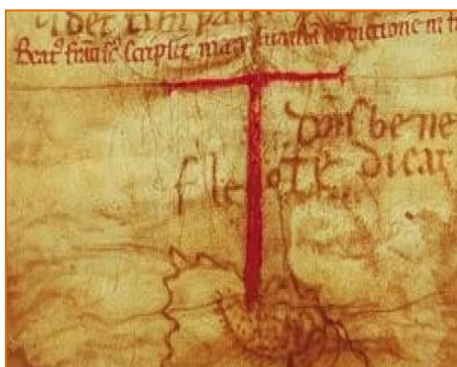 det
Beatꝰ franscꝰ scripsit manu sua istā bn̄dictionē m
dn̄s bene
f le o te dicat